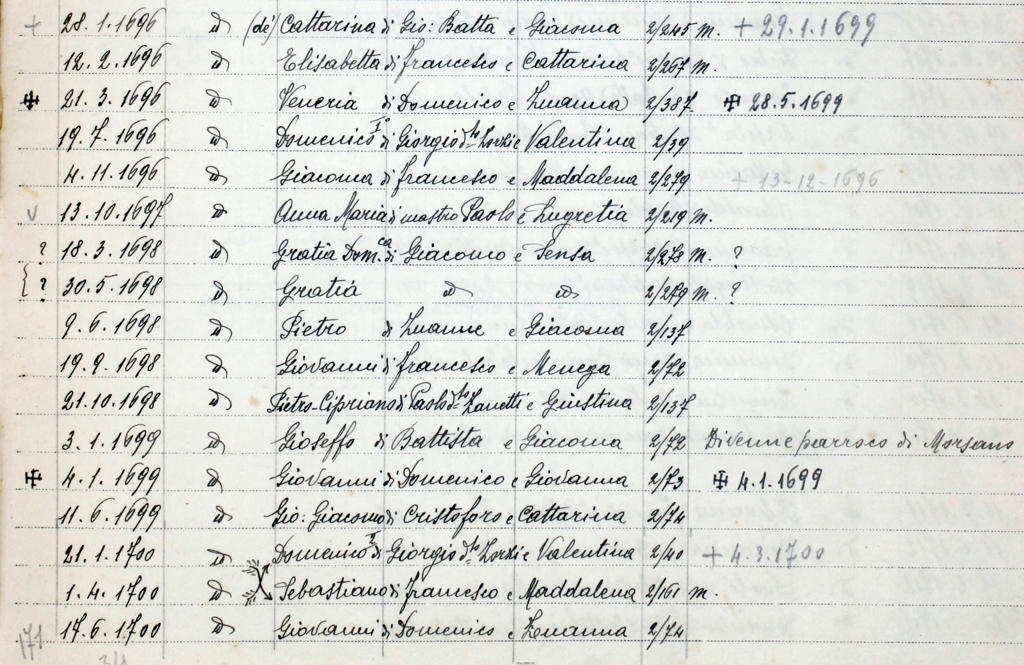 + 28.1.1696 id (de) Cattarina di Gio: Batta e Giacoma 2/245 m. + 29.1.1699
12.2.1696 id Elisabetta di Francesco e Cattarina 2/267 m.
✠ 21.3.1696 id Veneria di Domenico e Zuanna 2/387 ✠ 28.5.1699
19.7.1696 id Domenico I° di Giorgio d.to Zorzi e Valentina 2/39
4.11.1696 id Giacoma di Francesco e Maddalena 2/279 + 13-12-1696
v 13.10.1697 id Anna Maria di mastro Paolo e Lugretia 2/219 m.
? 18.3.1698 id Gratia Dom.ca di Giacomo e Sensa 2/278 m. ?
{ ? 30.5.1698 id Gratia id id 2/289 m. ?
9.6.1698 id Pietro di Zuanne e Giacoma 2/137
19.9.1698 id Giovanni di Francesco e Menega 2/72
21.10.1698 id Pietro-Cipriano di Paolo d.to Zanetti e Giustina 2/137
3.1.1699 id Gioseffo di Battista e Giacoma 2/72 Divenne parroco di Morsano
✠ 4.1.1699 id Giovanni di Domenico e Giovanna 2/73 ✠ 4.1.1699
11.6.1699 id Gio: Giacomo di Cristoforo e Cattarina 2/74
21.1.1700 id Domenico di Giorgio d.to Zorzi e Valentina 2/40 + 4.3.1700
1.4.1700 id Sebastiano di Francesco e Maddalena 2/161 m.
171 17.6.1700 id Giovanni di Domenico e Zuanna 2/74